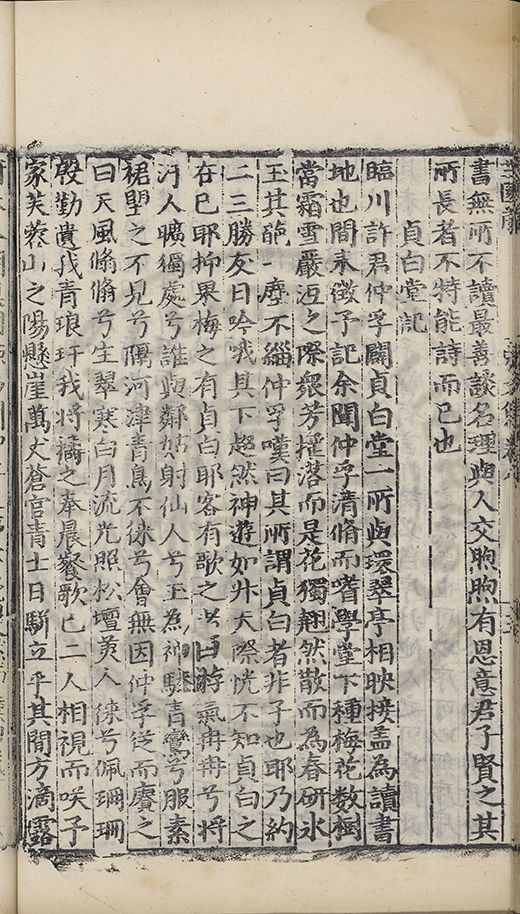 書無所不讀最善談名理與人交煦煦有恩意君子賢之其
所長者不特能詩而已也
貞白堂記
臨川許君仲孚闢貞白堂一所與環翠亭相映接蓋為讀書
地也間來徵予記余聞仲孚清脩而嗜學堂下種梅花数樹
當霜雪嚴沍之際衆芳摧落而是花獨翹然散而為春硏氷
玉其葩一塵不緇仲孚嘆曰其所謂貞白者非子也耶乃約
二三勝友日吟哦其下超然神遊如升天際恍不知貞白之
在己耶抑果梅之有貞白耶客有歌之者曰時氣冉冉兮将
汙人曠獨處兮誰與鄰姑射仙人兮玉為神驂青鸞兮服素
裙朢之不見兮隔河津青鳥不徠兮會無因仲孚従而賡之
曰天風翛翛兮生翠寒白月流光照松壇羙人徠兮佩珊珊
殷勤遺我青琅玕我将襭之奉晨餐歌已二人相視而咲予
家芙蓉山之陽懸崖萬丈蒼官青士日駢立乎其間方滴露